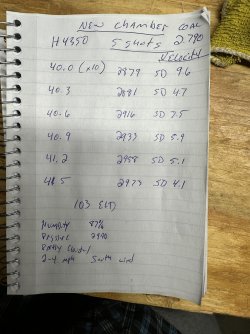 NEW CHAMBER COAL
H4350 5 SHOTS 2.790
VELOCITY
40.0 (x10) 2879 SD 9.6
40.3 2881 SD 4.7
40.6 2916 SD 7.5
40.9 2933 SD 5.9
41.2 2958 SD 5.1
41.5 2973 SD 4.1
103 ELD
Humidity 87%
Pressure 2990
Partly Cloudy
2-4 mph South wind